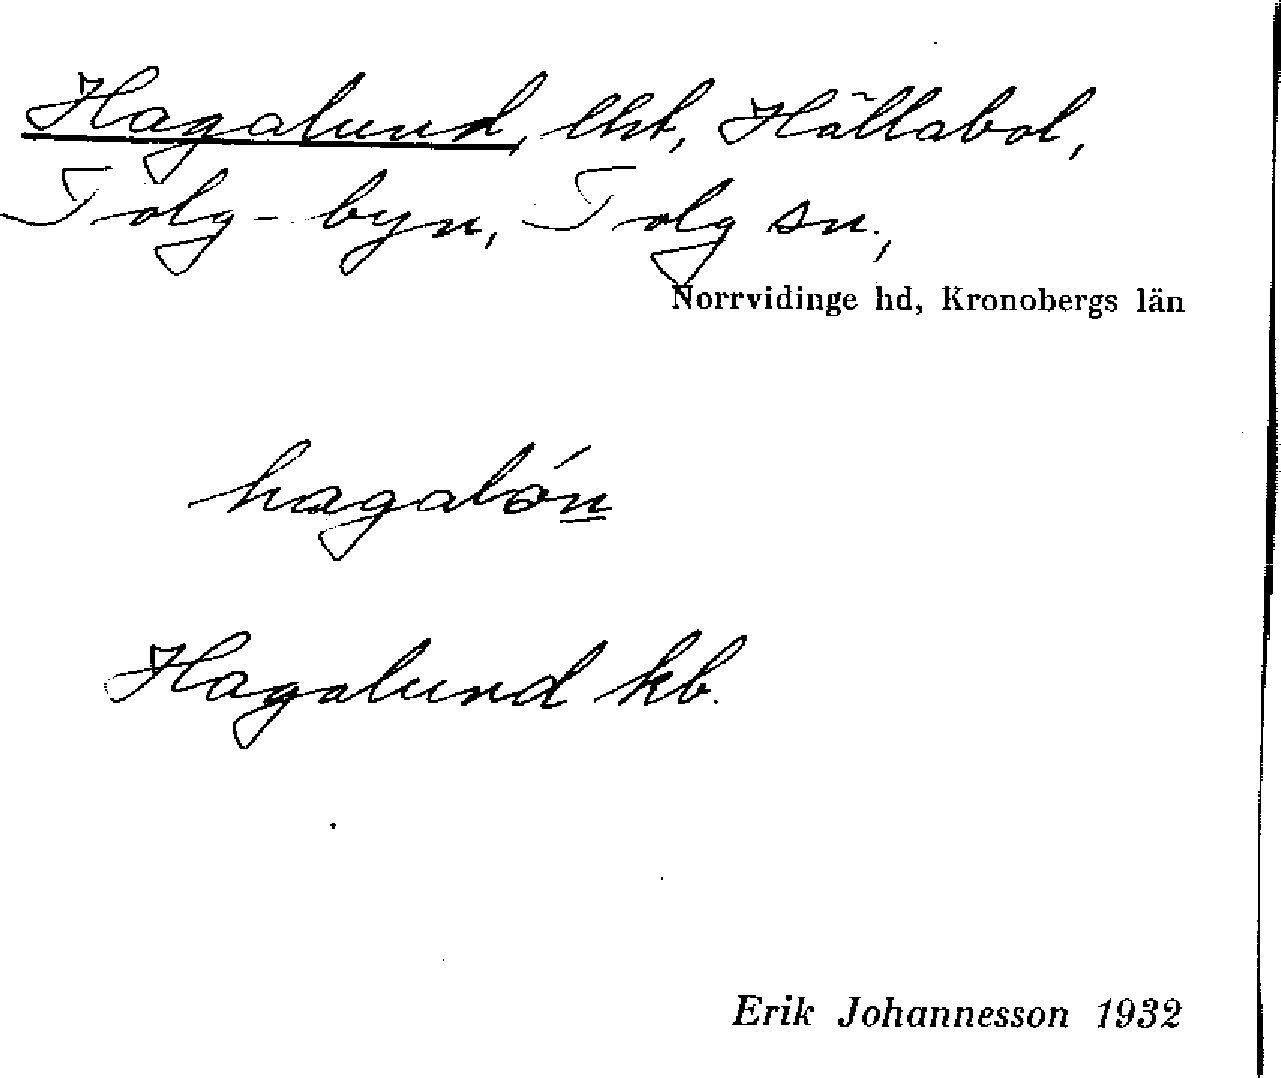 Hagalund, lht, Hållabol,
Tolg-byn, Tolg sn.,
Norrvidinge hd, Kronobergs län
hagalón
Hagalund kb.
Erik Johannesson 1932